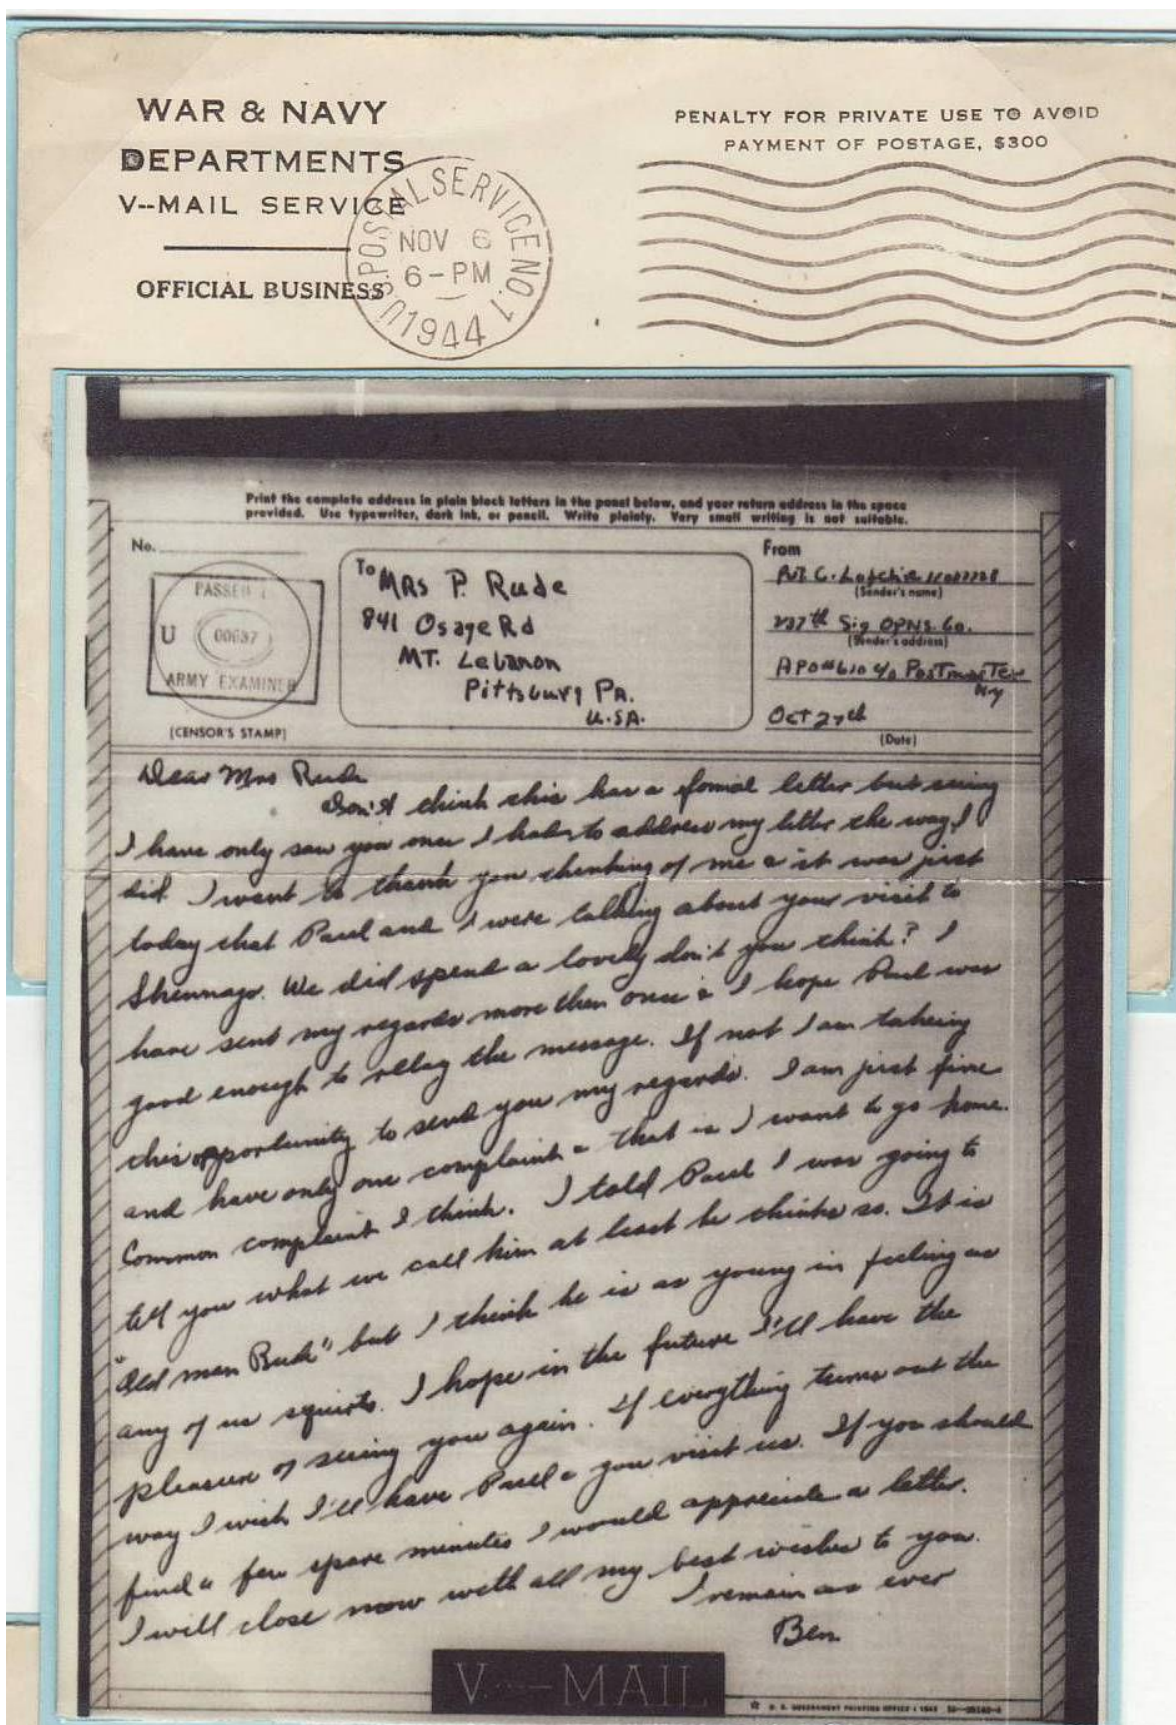 WAR & NAVY
DEPARTMENTS
V--MAIL SERVICE
OFFICIAL BUSINESS
U.S. POSTAL SERVICE NO. 1
NOV 6
6-PM
1944
PENALTY FOR PRIVATE USE TO AVOID
PAYMENT OF POSTAGE, $300
Print the complete address in plain block letters in the panel below, and your return address in the space
provided. Use typewriter, dark ink, or pencil. Write plainly. Very small writing is not suitable.
No.
PASSED
U 00637
ARMY EXAMINER
(CENSOR'S STAMP)
To MRS P. Rude
841 Osage Rd
MT. Lebanon
Pittsburg PA.
U.SA.
From
Pvt. C.
(Sender's name)
Sig OPNS Co.
(Sender's address)
APO#610 c/o Postmaster
NY
Oct 27th
(Date)
Dear Mrs Rude
Don't think this has a formal letter but seeing
I have only saw you once I had to address my letter the way I
did. I want to thank you thinking of me & it was just
today that Paul and I were talking about your visit to
Shennago. We did spend a lovely don't you think? I
have sent my regards more then once & I hope Paul was
good enough to relay the message. If not I am takeing
this opportunity to send you my regards. I am just fine
and have only one complaint & that is I want to go home.
Common complaint I think. I told Paul I was going to
tell you what we call him at least he thinks so. It is
"Old man Rude" but I think he is as young in feeling as
any of us squirts. I hope in the future I'll have the
pleasure of seeing you again. If everything turns out the
way I wish I'll have Paul & you visit us. If you should
find a few spare minutes I would appreciate a letter.
I will close now with all my best wishes to you.
I remain as ever
Ben
V---MAIL
U. S. GOVERNMENT PRINTING OFFICE : 1943